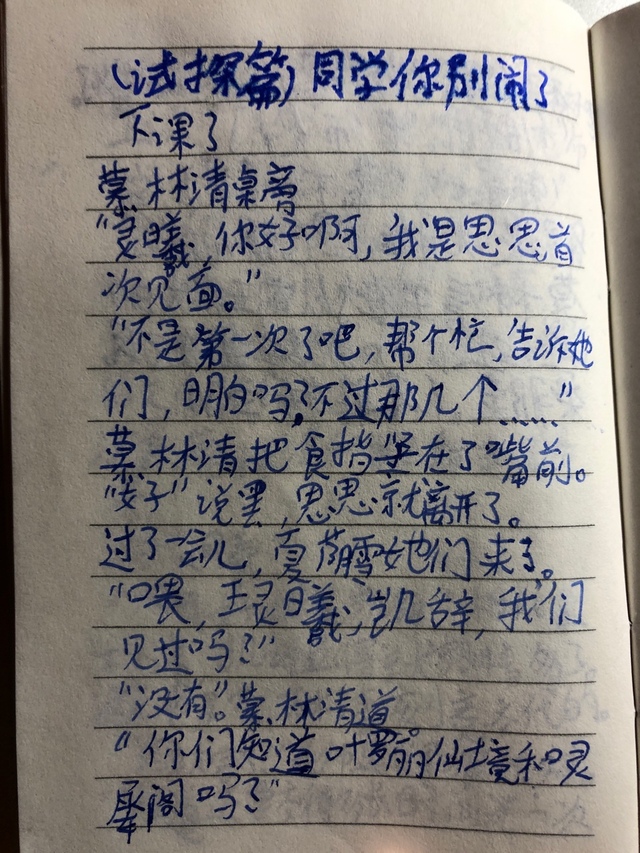 (试探篇)同学你别闹了
下课了
慕林清桌旁
“灵曦,你好啊,我是思思首
次见面。”
“不是第一次了吧,帮个忙,告诉她
们,明白吗?不过那几个……”
慕林清把食指竖在了嘴前。
“好”说罢,思思就离开了。
过了一会儿,夏荫雪她们来了。
“喂,王灵曦,凯辞,我们
见过吗?”
“没有”。慕林清道。
“你们知道叶罗丽仙境和灵
犀阁吗?”